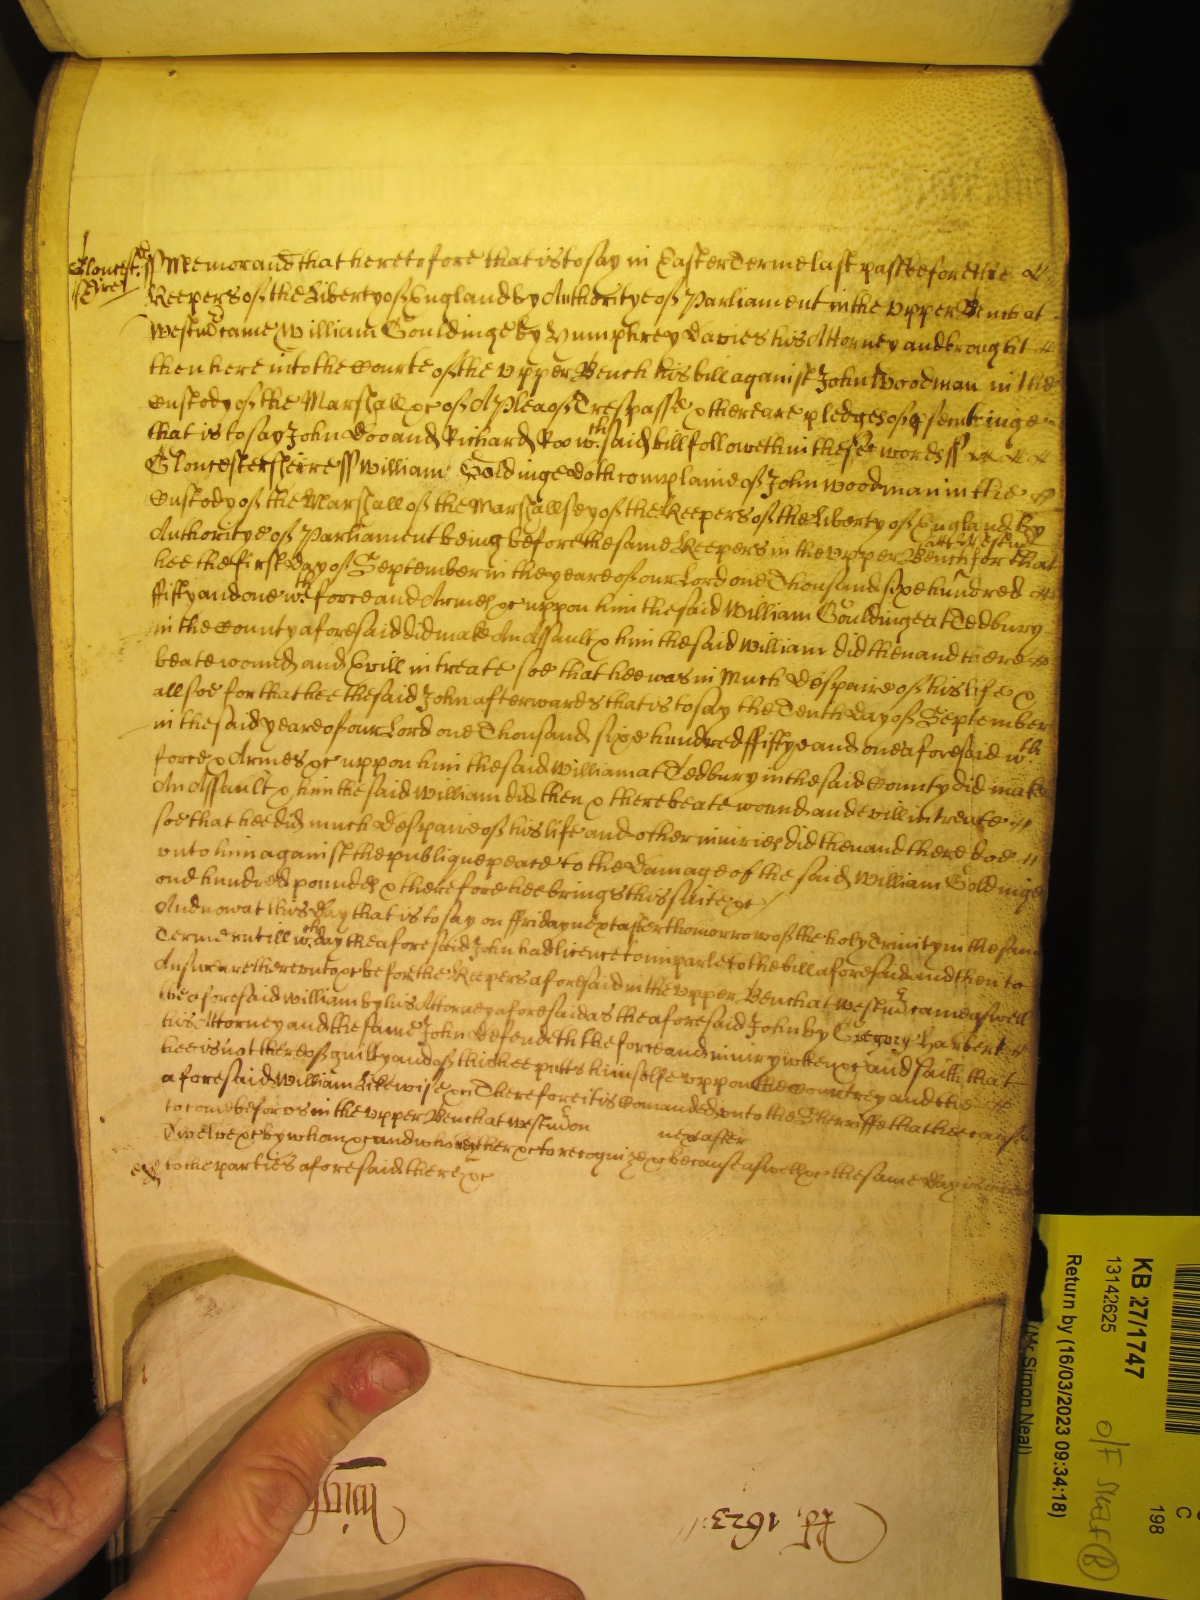 Gloucest:
shire ss Memorand that heretofore that is to say in Easter Terme last past before the
Keepers of the Liberty of England by Authoritye of Parliament in the upper Bench at
Westm̃ came William Gouldinge by Humphrey Davies his Attorney and brought
then here into the Courte of the upper Bench his bill against John Woodman in the
Custody of the Marshall &c of A Plea of Trespasse & there are pledges of prosecutinge
that is to say John Doo and Richard Roo wch said bill followeth in these words ss
Gloucestersheire ss William Goldinge doth complaine of John Woodman in the
Custody of the Marshall of the Marshallsey of the Keepers of the Liberty of England by
Authoritye of Parliament being before the same Keepers in the upper Bench att Westm̃ for that
hee the first day of September in the yeare of our Lord one Thousand sixe hundred
fifty and one wth force and Armes &c uppon him the said William Gouldinge at Tedbury
in the County aforesaid did make An Assault & him the said William did then and there
beate wound and Evill intreate soe that hee was in Much despaire of his life &
allsoe for that hee the said John afterwards that is to say the Tenth day of September
in the said yeare of our Lord one Thousand sixe hundred ffiftye and one aforesaid wth
force & Armes &c uppon him the said William at Tedbury in the said County did make
An Assault & him the said William did then & there beate wound and evill intreate
soe that hee did much despaire of his life and other iniuries did then and there doe
unto him against the publique peace to the Damage of the said William Goldinge
one hundred pounds & therefore hee brings this suite &c
And now at this day that is to say on ffriday next after the morrow of the holy Trinity in the same
Terme untill wch day the aforesaid John had licence to imparle to the bill aforesaid and then to
Answeare thereunto &c before the Keepers aforesaid in the upper Bench at Westm̃ came aswell
the aforesaid William by his Attorney aforesaid as the aforesaid John by Gregory Harbert
his Attorney and the same John defendeth the force and iniury when &c and saith that
hee is not thereof guilty and of this hee putts himselfe uppon the Countrey and the
aforesaid William Likewise &c Therefore it is Comanded unto the Sherriffe that hee cause
to come before us in the upper Bench at Westm̃ on next after
Twelve &c by whom &c and who neither &c to recognize &c because aswell &c the same day
to the parties aforesaid there &c
Rō. 1623
KB 27/1747
13142625
Return by (16/03/2023 09:34:18)
(Mr Simon Neal)
C
198